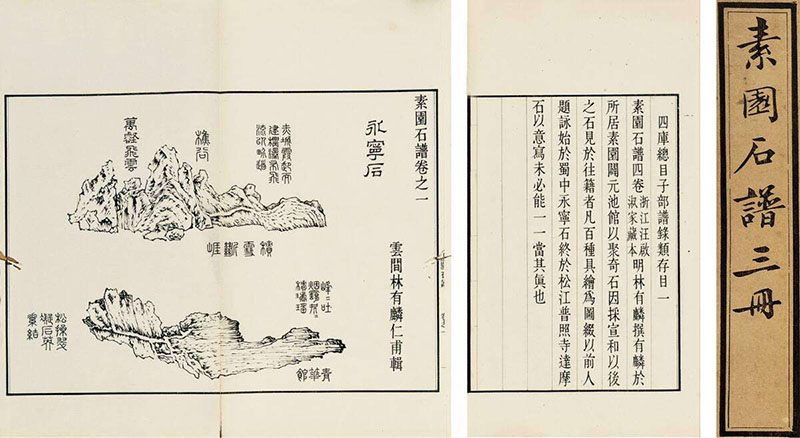 素園石譜三冊
四庫總目子部譜錄類存目一
素園石譜四卷 浙江汪啟淑家藏本 明林有麟撰有麟於
所居素園闢元池館以聚奇石因採宣和以後
之石見於往籍者凡百種具繪為圖綴以前人
題詠始於蜀中永寧石終於松江普照寺達摩
石以意寫未必能一一當其眞也
素園石譜卷之一
雲間林有麟仁甫輯
永寧石
赤城霞起而
建標瀑布飛
流以界道
樵谷
萬壑飛雲
積雪斷崖
峰二吐
青華館